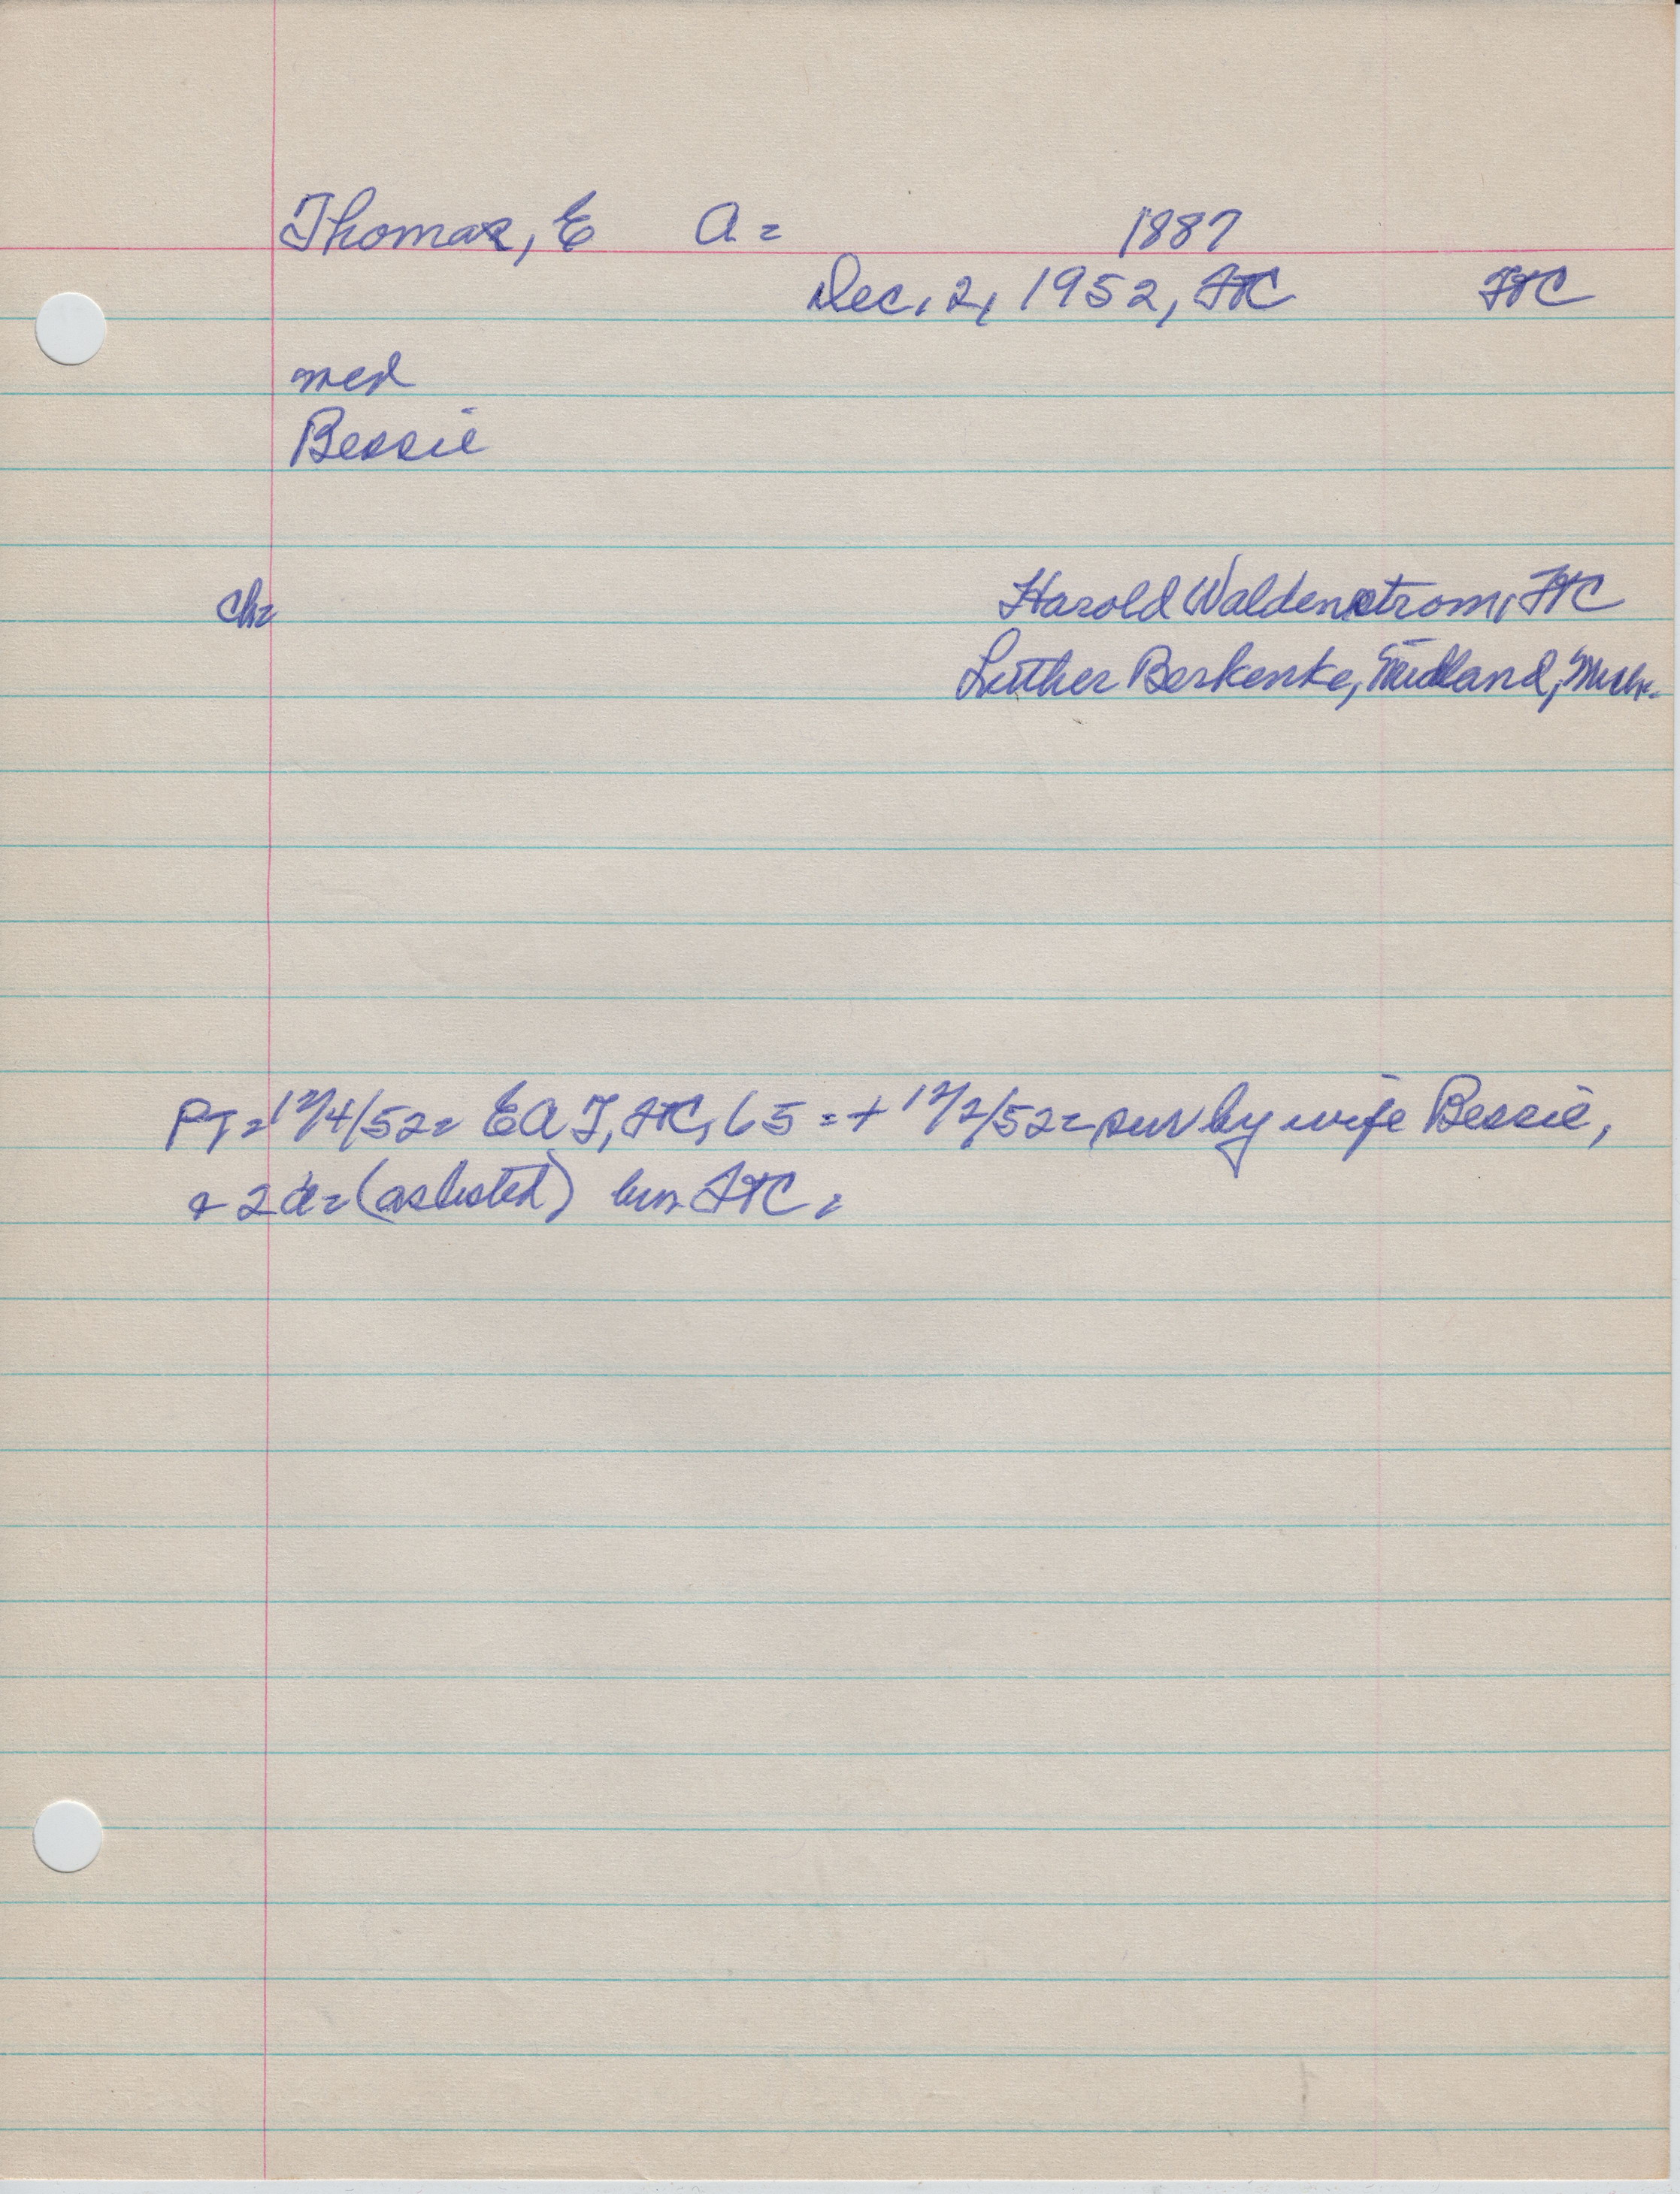 Thomas, E A = 1887
Dec. 2, 1952, FTC FTC
med
Bessie
ch= Harold Waldenstrom, FTC
Luther Berkenke, Midland, Mich.
PT=12/4/52= EAT, FTC, 65 = + 12/2/52= sur by wife Bessie,
+ 2 d= (as listed) FTC.